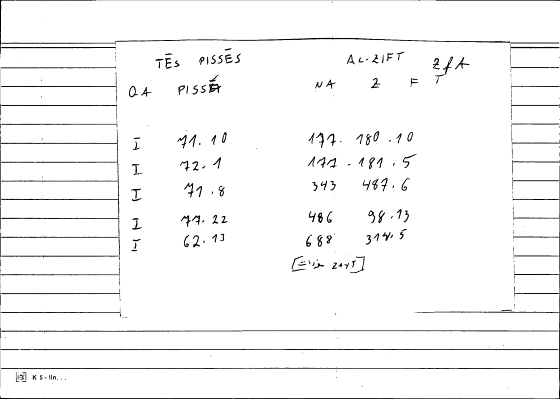 TĒS PISSĒS AL-ZIFT ZfA
QA PISSA NA Z F T
I 71.10 177. 180.10
I 72.1 177. 181.5
I 71.8 343 487.6
I 77.22 486 98.13
I 62.13 688 314.5
ZAYT]
K S-IIn...